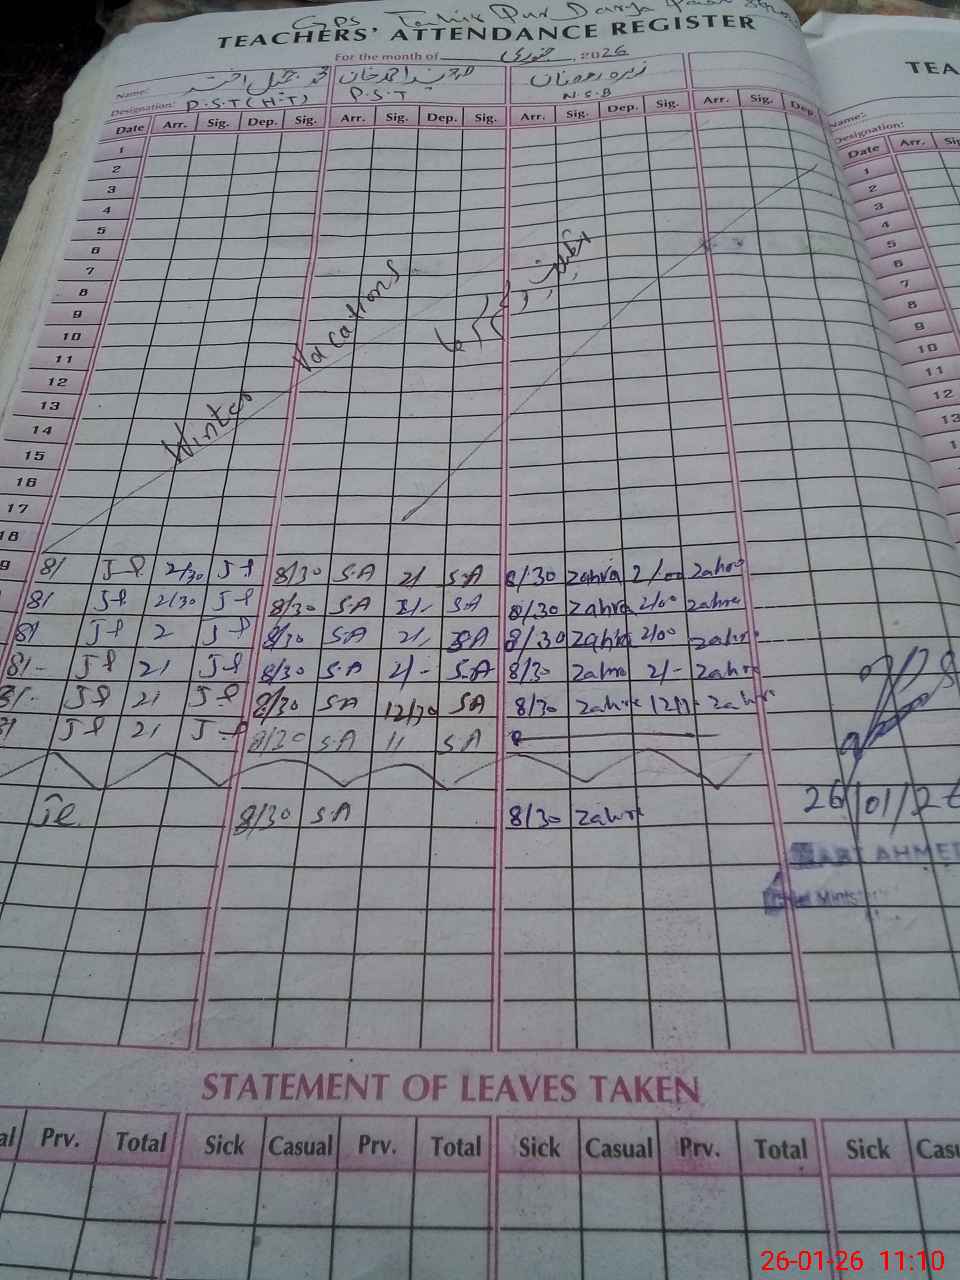 GPS Tahir Pur Darya
TEACHERS' ATTENDANCE REGISTER
For the month of جنوری , 2026
Name: محمد جمیل اختر احمد خان زہرہ رمضان
Designation: P.S.T (H.T) P.S.T N.S.B
Date Arr. Sig. Dep. Sig. Arr. Sig. Dep. Sig. Arr. Sig. Dep. Sig. Arr. Sig. Dep
1
2
3
4
5
6
7
8
9
10
11
12
13
14
15
16
17
18
Winter Vacations
9 8/ 2/30 8/30 S.A 2/ S.A 8/30 Zahra 2/00 Zahra
8/ 2/30 8/30 S.A S.A 8/30 Zahra 2/00 Zahra
8/ 2 8/30 S.A 2/, S.A 8/30 Zahra 2/00 Zahra
8/- 2/ 8/30 S.A 2/- S.A 8/30 Zahra 2/- Zahra
8/- 2/ 8/30 S.A 12/30 S.A 8/30 Zahra Zahra
8/ 2/ 8/30 S.A 11 S.A
8/30 S.A 8/30 Zahra
26/01/26
AHMED
STATEMENT OF LEAVES TAKEN
al Prv. Total Sick Casual Prv. Total Sick Casual Prv. Total Sick Casu
TEA
Name:
Designation:
Date Arr. Sig
1
2
3
4
5
6
7
8
9
10
11
12
13
1
26-01-26 11:10